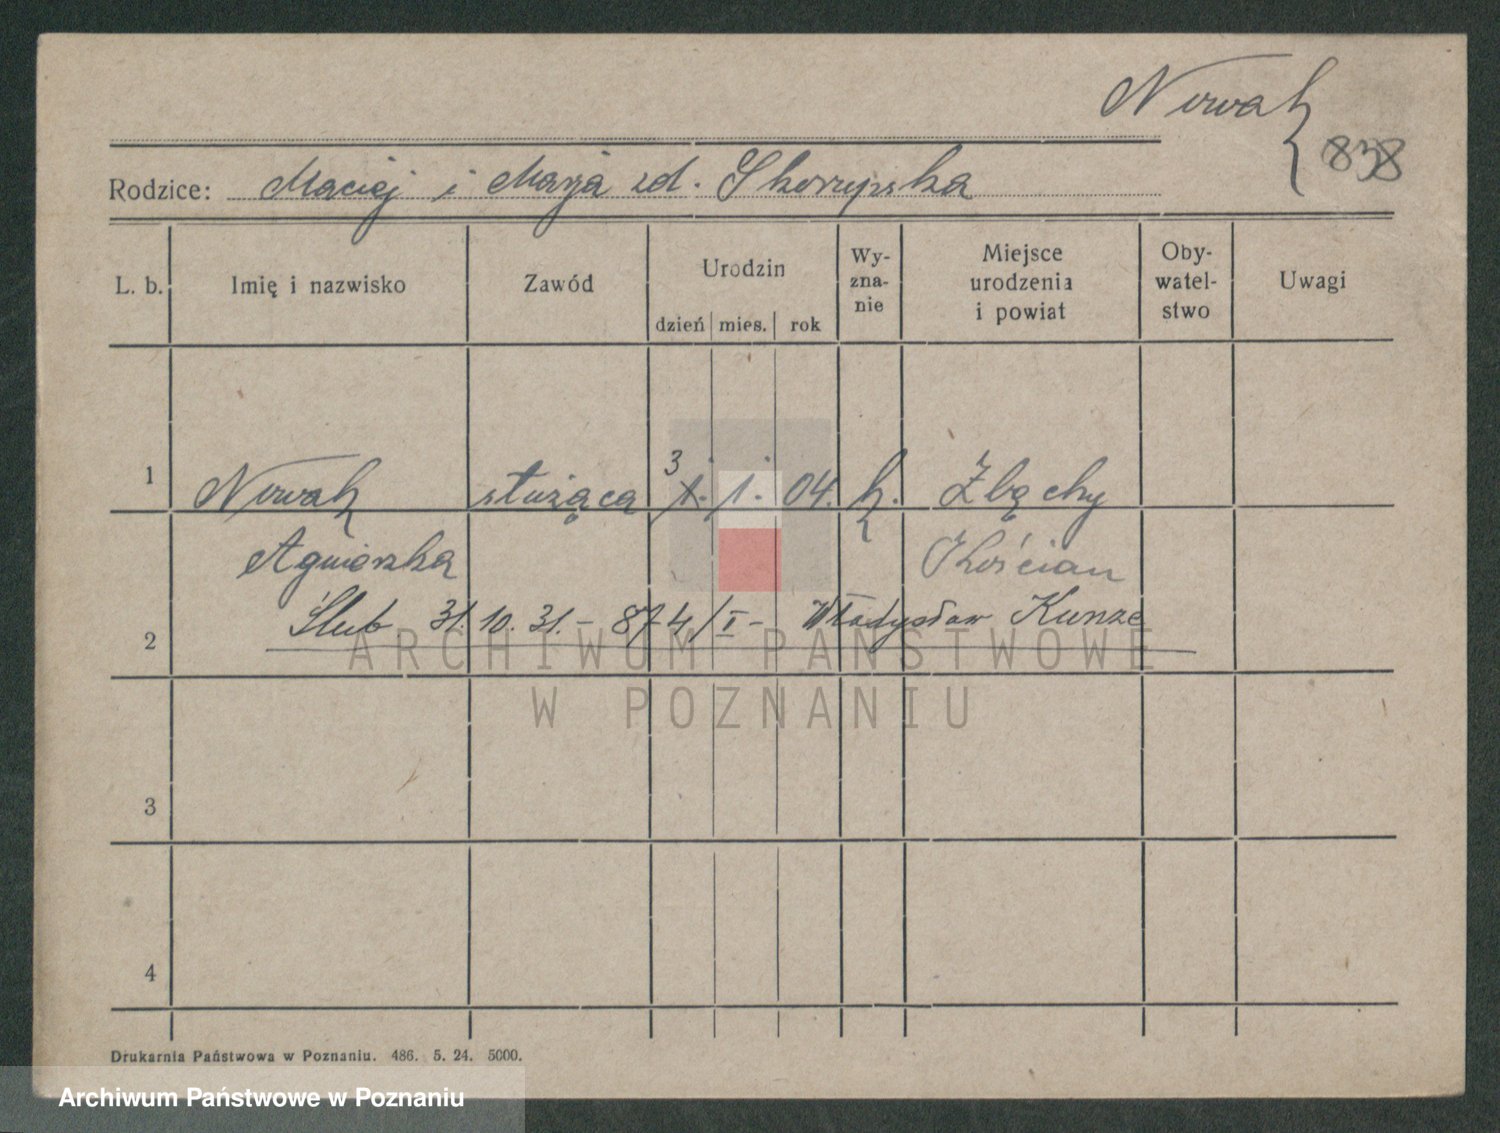 Nowak
838
Rodzice: Maciej i Marja zd. Skorupska
L. b. Imię i nazwisko Zawód Urodzin dzień mies. rok Wy-zna-nie Miejsce urodzenia i powiat Oby-watel-stwo Uwagi
1 Nowak służąca 3 1. 1. 04. k. Zbęchy
Agnieszka Kościan
2 Ślub 31. 10. 31. - 874/I - Władysław Kunze
3
4
Drukarnia Państwowa w Poznaniu. 486. 5. 24. 5000.
ARCHIWUM PAŃSTWOWE
W POZNANIU
Archiwum Państwowe w Poznaniu